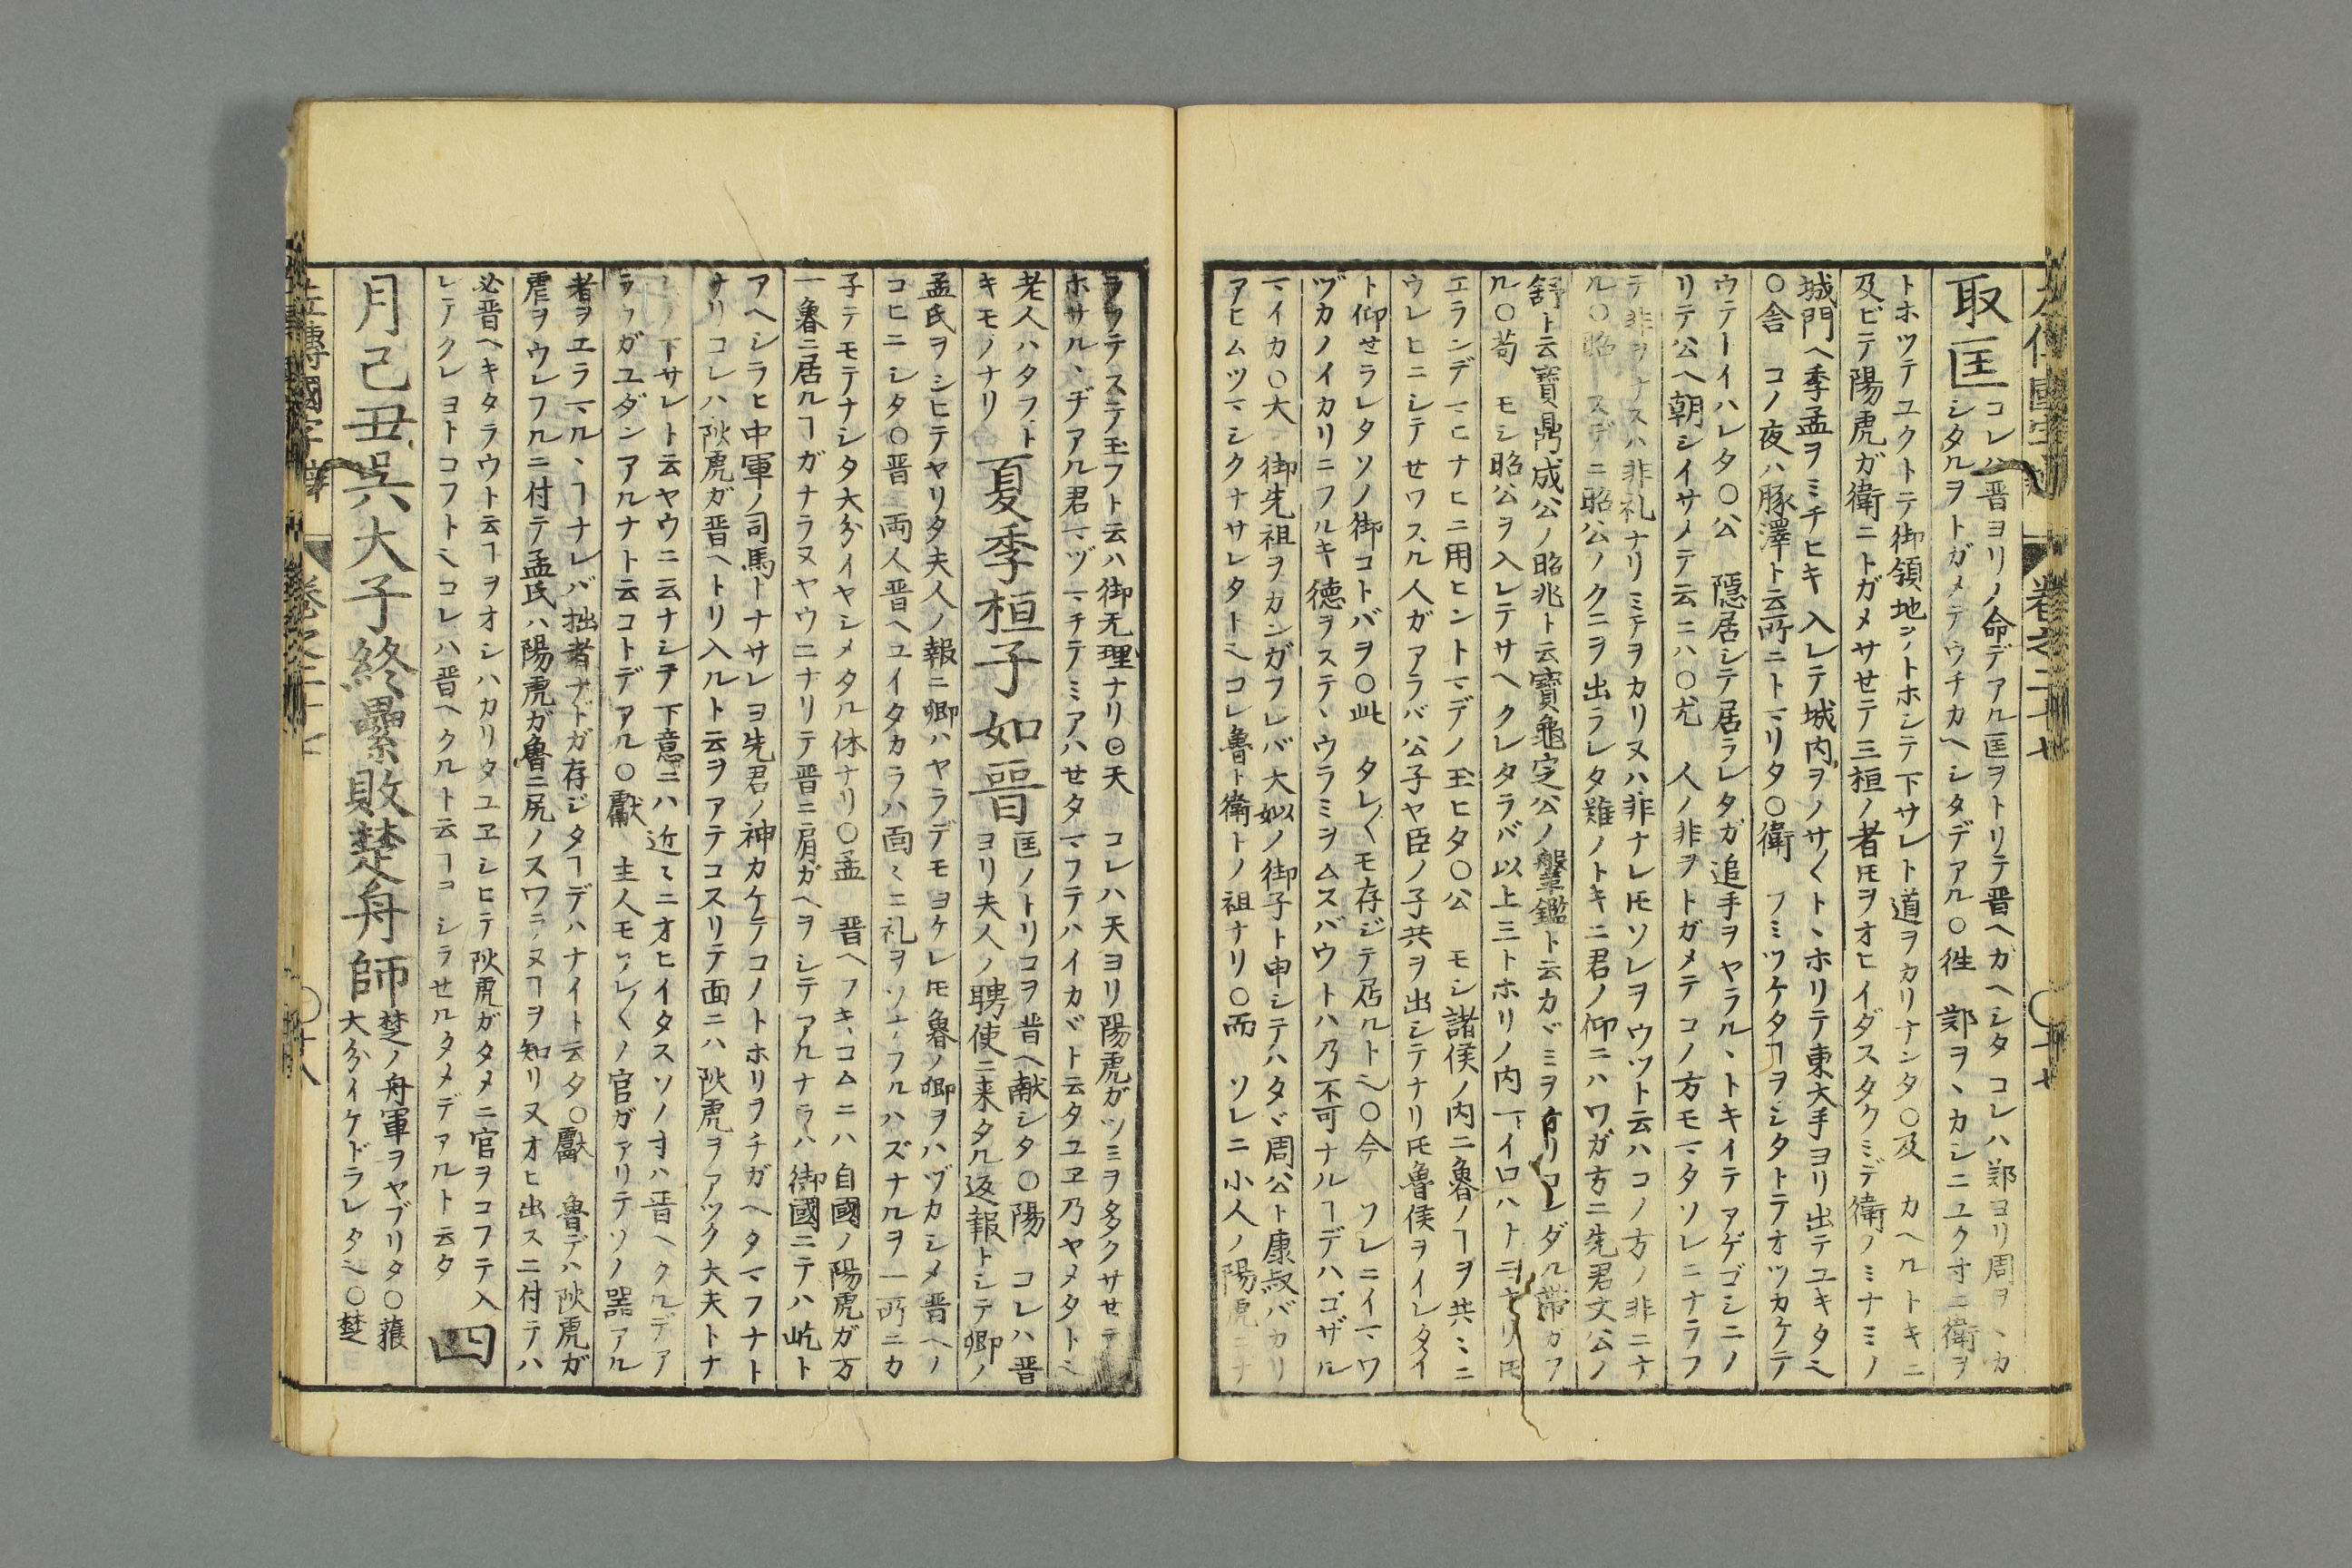 取匡
コレハ晋ヨリノ命デアル匡ヲトリテ晋ヘガヘシタコレハ鄭ヨリ周ヲヽカ
シタルヲトガメテウチカヘシタデアル〇徃 鄭ヲヽカシニユクオニ衛ヲ
トホツテユクトテ御領地ヲトホシテ下サレト道ヲカリナンタ〇及 カヘルトキニ
及ビテ陽虎ガ衛ニトガメサセテ三桓ノ者𪜈ヲオヒイダスタクミデ衛ノミナミノ
城門ヘ季孟ヲミチヒキ入レテ城内ヲノサ〱トヽホリテ東大手ヨリ出テユキタ〻
〇舎 コノ夜ハ豚澤ト云所ニトマリタ〇衛 フミツケタヿヲシタトテオツカケテ
ウテトイハレタ〇公 隠居シテ居ラレタガ追手ヲヤラルヽトキイテアゲゴシニノ
リテ公ヘ朝シイサメテ云ニハ〇尤 人ノ非ヲトガメテコノ方モマタソレニナラフ
テ非ヲナスハ非礼ナリミテヲカリヌハ非ナレ𪜈ソレヲウツト云ハコノ方ノ非ニナ
ル〇昭 スデニ昭公ノクニヲ出ラレタ難ノトキニ君ノ仰ニハワガ方ニ先君文公ノ
舒ト云寳鼎成公ノ昭兆ト云寳龜定公ノ鞶鑑ト云カヾミヲ
ル〇苟 モシ昭公ヲ入レテサヘクレタラバ以上三トホリノ内
エランデマヒナヒニ用ヒントマデノ玉ヒタ〇公 モシ諸侯ノ内ニ魯ノヿヲ共ミニ
ウレヒニシテセワスル人ガアラバ公子ヤ臣ノ子共ヲ出シテナリ𪜈魯侯ヲイレタイ
ト仰セラレタソノ御コトバヲ〇此 タレ〱モ存ジテ居ルト〻〇今 ソレニイマワ
ヅカノイカリニフルキ徳ヲステヽウラミヲムスバウトハ乃不可ナルヿデハゴザル
マイカ〇大 御先祖ヲカンガフレバ大姒ノ御子ト申シテハタヾ周公ト康叔バカリ
アヒムツマシクナサレタト〻コレ魯ト衛トノ祖ナリ〇而 ソレニ小人ノ陽虎ニナ
ラフテステ玉フト云ハ御无理ナリ〇天 コレハ天ヨリ陽虎ガツミヲ多クサセテ
ホサルヽヂアル君マヅマチテミアハセタマフテハイカヾト云タユヱ乃ヤメタト〻
老人ハタフト
キモノナリ
夏季桓子如晋
匡ノトリコヲ晋ヘ献シタ〇陽 コレハ晋
ヨリ夫人ノ聘使ニ来タル返報トシテ卿ノ
孟氏ヲシヒテヤリタ夫人ノ報ニ卿ハヤラデモヨケレ𪜈魯ノ卿ヲハヅカシメ晋ヘノ
コヒニシタ〇晋 両人晋ヘユイタカラハ面〻ニ礼ヲソナフルハズナルヲ一所ニカ
子テモテナシタ大分イヤシメタル体ナリ〇孟 晋ヘフキヽコムニハ自國ノ陽虎ガ万
一魯ニ居ルヿガナラヌヤウニナリテ晋ニ肩ガヘヲシテアルナラハ御國ニテハ屹ト
アヘシラヒ中軍ノ司馬トナサレヨ先君ノ神カケテコノトホリヲチガヘタマフナト
ナリコレハ陽虎ガ晋ヘトリ入ルト云ヲアテコスリテ面ニハ陽虎ヲアツク大夫トナ
下サレト云ヤウニ云ナシテ下意ニハ近〻ニオヒイタスソノオハ晋ヘクルデア
ラフガユダンアルナト云コトデアル〇獻 主人モソレ〱ノ官ガアリテソノ器アル
者ヲエラマルヽヿナレバ拙者ナドガ存ジタヿデハナイト云タ〇獻 魯デハ陽虎ガ
虐ヲウレフルニ付テ孟氏ハ陽虎ガ魯ニ尻ノスワラヌヿヲ知リ又オヒ出スニ付テハ
必晋ヘキタラウト云ヿヲオシハカリタユヱシヒテ陽虎ガタメニ官ヲコフテ入
レテクレヨトコフト〻コレハ晋ヘクルト云ヿヲシラセルタメデアルト云タ
四
月己丑呉大子終纍敗楚舟師
楚ノ舟軍ヲヤブリタ〇獲
大分イケドラレタ〻〇楚
左傳國字辯
巻之二十七